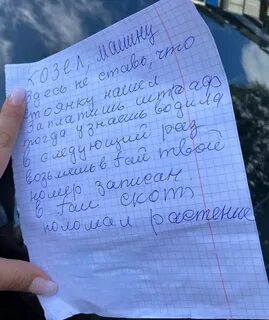 козел, машину
здесь не ставь, что
стоянку нашел
Заплатишь штраф
тогда узнаешь водила
в следующий раз
возьмешь в гаи твой
номер записан
в гаи скот
поломал растение